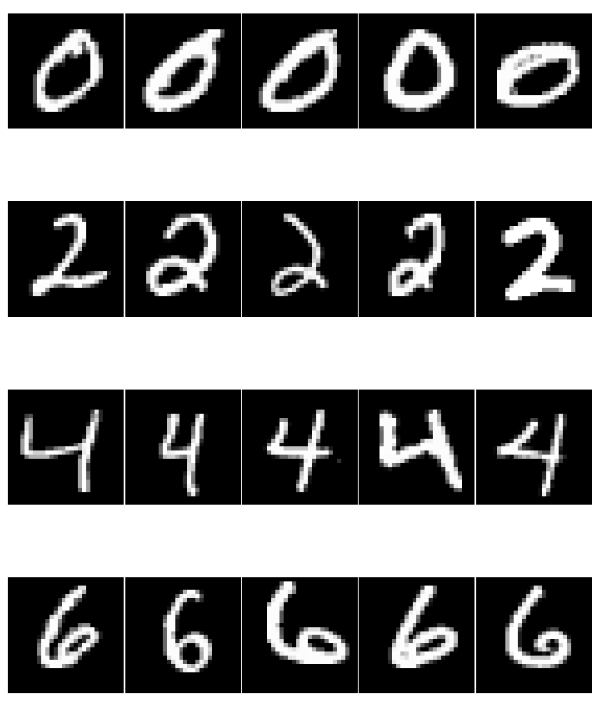 0 0 0 0 0
2 2 2 2 2
4 4 4 4 4
6 6 6 6 6